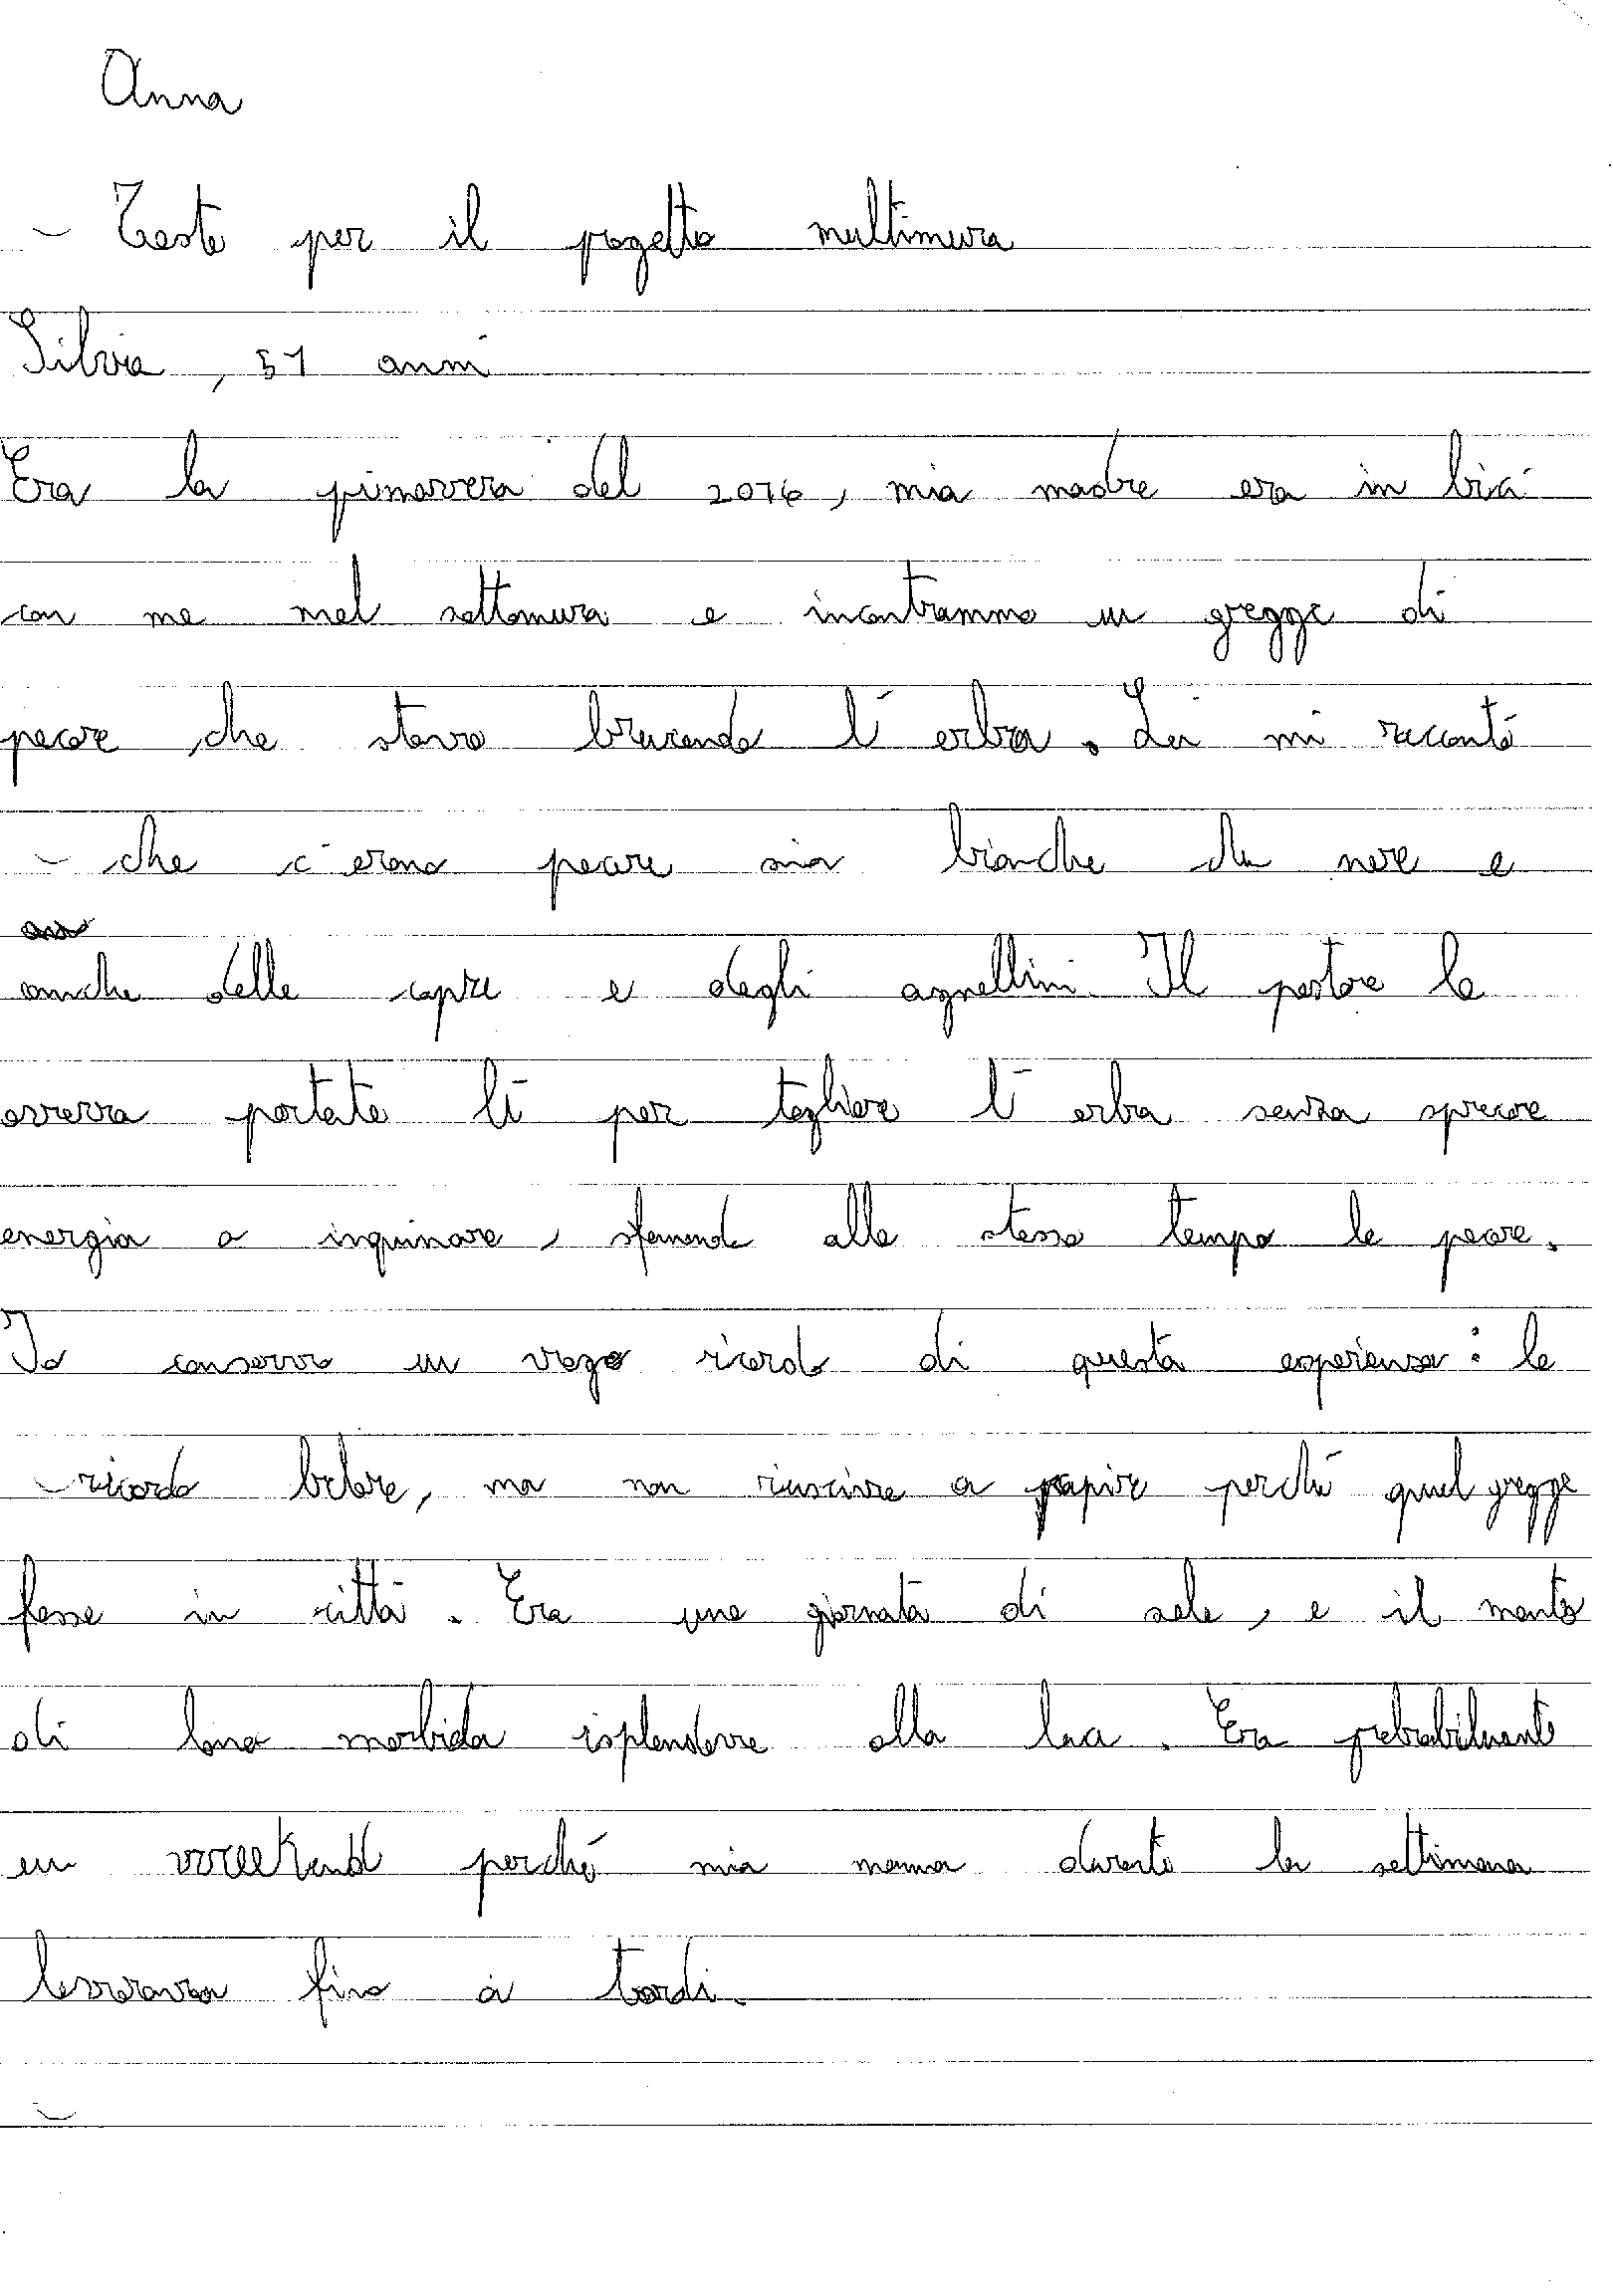 Anna
Testo per il progetto multimura
Silvia, 51 anni
Era la primavera del 2016, mia madre era in bici
con me nel sottomura e incontrammo un gregge di
pecore che stava brucando l'erba. Lei mi raccontò
che c'erano pecore sia bianche che nere e
anche delle capre e degli agnellini. Il pastore le
aveva portate lì per togliere l'erba senza sprecare
energia o inquinare, sfamando allo stesso tempo le pecore.
Io conservo un vago ricordo di questa esperienza: le
ricordo belare, ma non riuscivo a capire perché quel gregge
fosse in città. Era una giornata di sole, e il manto
di lana morbida risplendeva alla luce. Era probabilmente
un weekend perché mia mamma durante la settimana
lavorava fino a tardi.